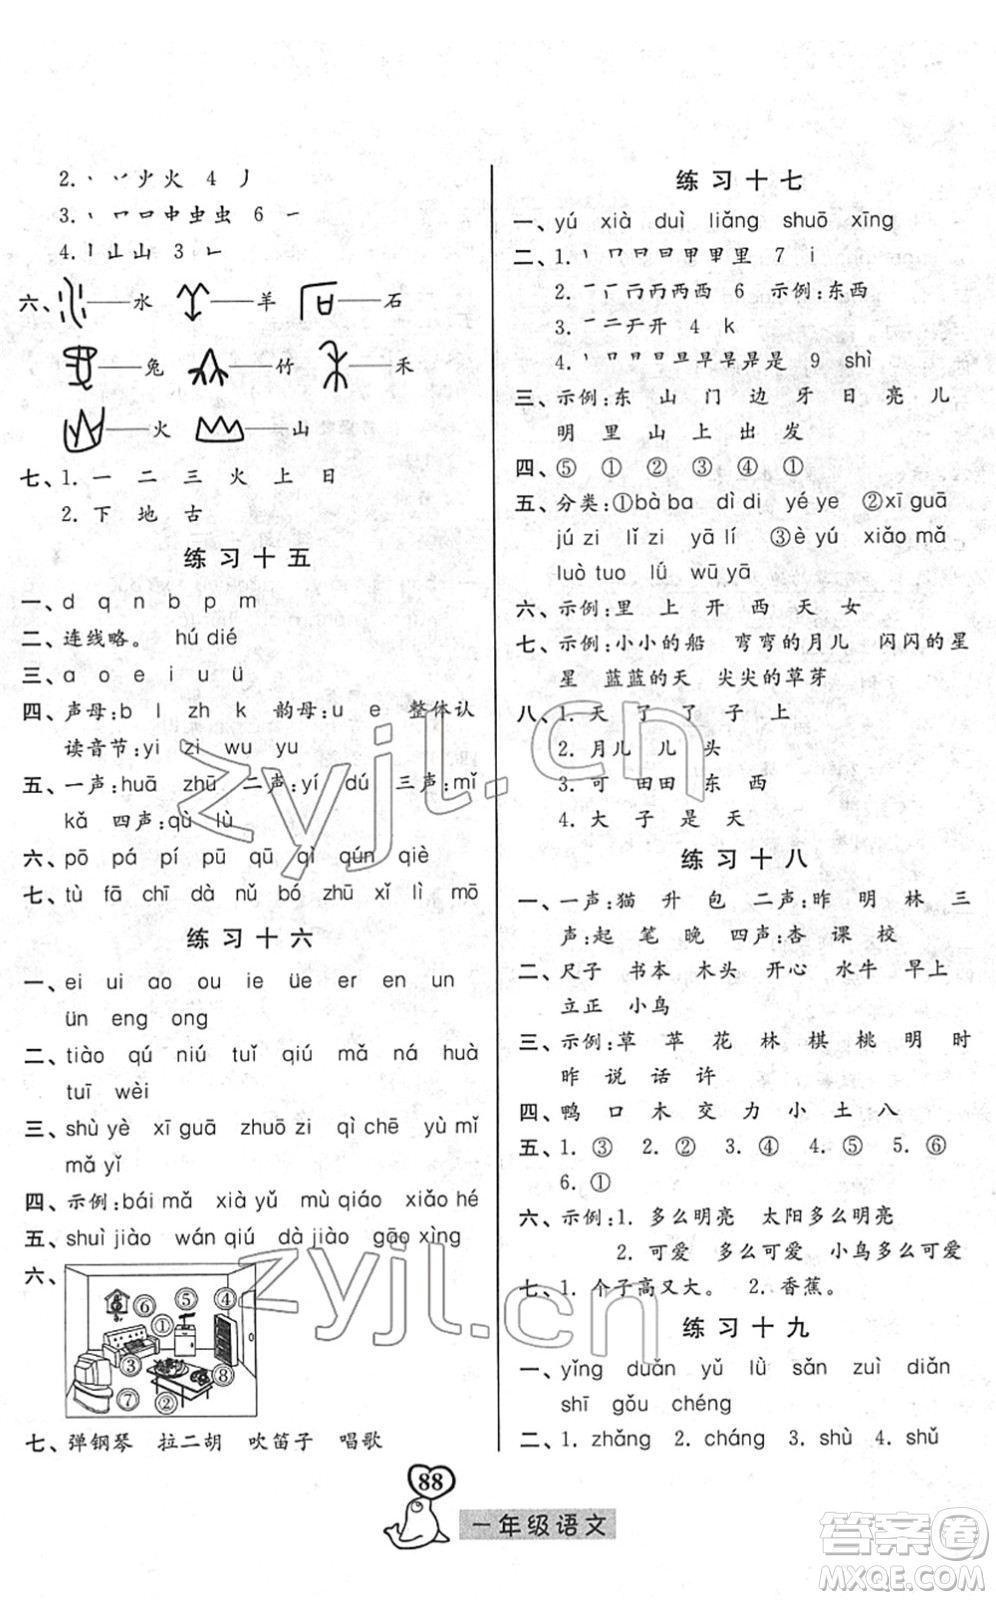 2.丶 丷 少 火 4 丿
3.丶 口 口 中 虫 虫 6 ㇐
4.丨 山 山 3 ㇗
六、——水 ——羊 ——石
——兔 ——竹 ——禾
——火 ——山
七、1.一 二 三 火 上 日
2.下 地 古
练习十五
一、d q n b p m
二、连线略。 hú dié
三、a o e i u ü
四、声母:b l zh k 韵母:u e 整体认
读音节:yi zi wu yu
五、一声:huā zhū 二声:yí dú 三声:mǐ
kǎ 四声:qù lù
六、pō pá pí pū qū qì qún qiè
七、tù fā chī dà nǔ bó zhū xǐ lì mō
练习十六
一、ei ui ao ou ie üe er en un
ün eng ong
二、tiào qú niú tuǐ qiú mǎ ná huà
tuī wèi
三、shù yè xī guā zhuō zi qì chē yù mǐ
mǎ yǐ
四、示例:bái mǎ xià yǔ mù qiáo xiǎo hé
五、shuì jiào wán qiú dà jiào gāo xìng
六、
⑥ ⑤ ④
①
③ ⑧
⑦ ②
七、弹钢琴 拉二胡 吹笛子 唱歌
练习十七
一、yú xià duì liǎng shuō xīng
二、1.丨 冂 日 日 甲 甲 里 7 i
2.一 丆 丙 丙 两 西 6 示例:东西
3.一 二 于 开 4 k
4.丨 冂 日 日 旦 早 早 昰 是 9 shì
三、示例:东 山 门 边 牙 日 亮 儿
明 里 山 上 出 发
四、⑤ ② ③ ④ ①
五、分类:①bà ba dì di yé ye ②xī guā
jú zi lǐ zi yā lí ③è yú xiǎo mǎ
luò tuo lǘ wū yā
六、示例:里 上 开 西 天 女
七、示例:小小的船 弯弯的月儿 闪闪的星
星 蓝蓝的天 尖尖的草芽
八、1.天 了 了 子 上
2.月儿 儿 头
3.可 田田 东 西
4.大 子 是 天
练习十八
一、一声:猫 升 包 二声:昨 明 林 三
声:起 笔 晚 四声:杏 课 校
二、尺子 书本 木头 开心 水牛 早上
立正 小鸟
三、示例:草 苹 花 林 棋 桃 明 时
昨 说 话 许
四、鸭 口 木 交 力 小 土 八
五、1.③ 2.② 3.④ 4.⑤ 5.⑥
6.①
六、示例:1.多么明亮 太阳多么明亮
2.可爱 多么可爱 小鸟多么可爱
七、1.个子高又大。 2.香蕉。
练习十九
一、yǐng duǎn yǔ lù sǎn zuì diǎn
shī gǒu chéng
二、1.zhǎng 2.cháng 3.shù 4.shǔ
88
一年级语文
zyjl.cn
zyjl.cn
答案圈
MXQE.COM